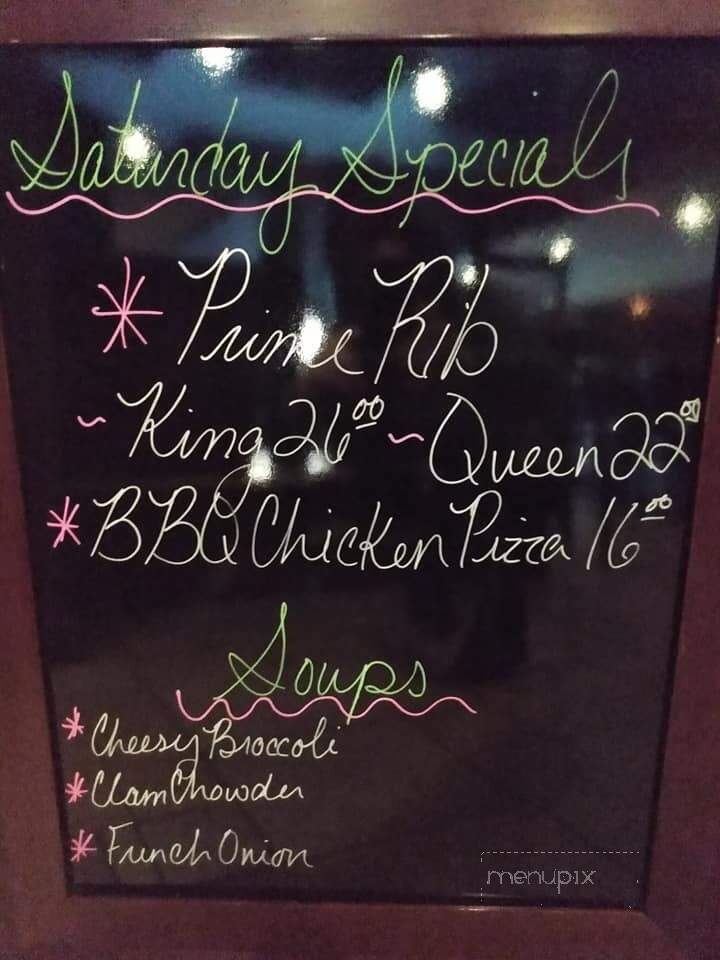 Saturday Specials
* Prime Rib
~ King 26⁰⁰ ~ Queen 22⁰⁰
* BBQ Chicken Pizza 16⁰⁰
Soups
* Cheesy Broccoli
* Clam Chowder
* French Onion
menupix